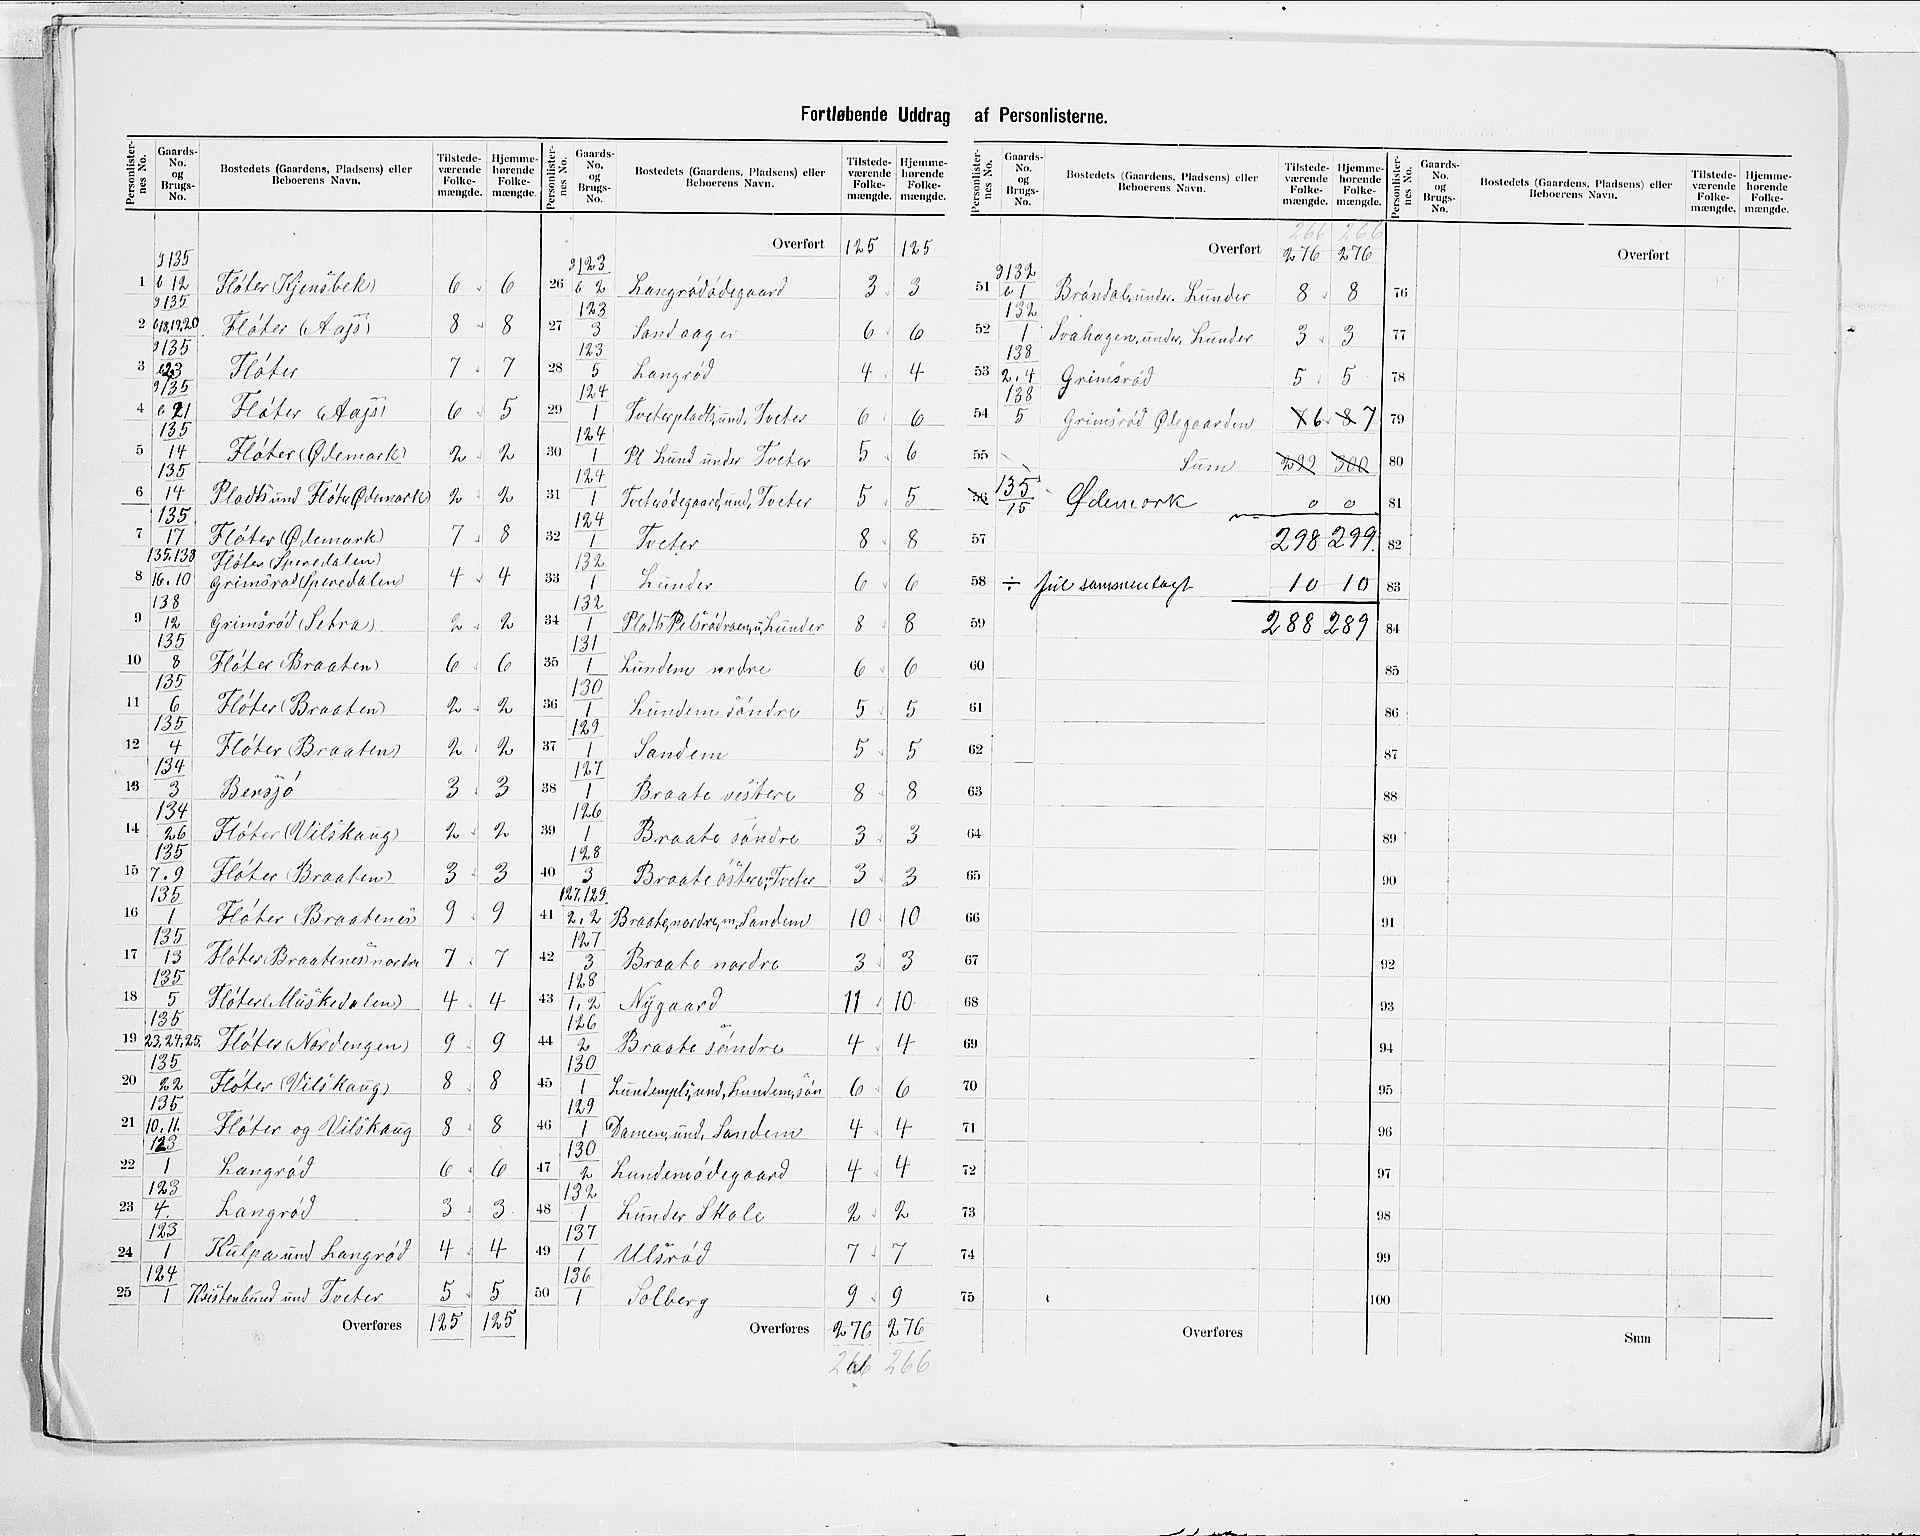 Fortløbende Uddrag af Personlisterne.
Personlisternes No. Gaards-No. og Brugs-No. Bostedets (Gaardens, Pladsens) eller Beboerens Navn. Tilstedeværende Folkemængde. Hjemmehørende Folkemængde.
g 135
1 b 12 Fløter (Kjensbek) 6 6
g 135
2 b 18,19,20 Fløter (Aajs) 8 8
g 135
3 23 Fløter 7 7
g 135
4 b 21 Fløter (Aajs) 6 5
135
5 14 Fløter (Ødemark) 2 2
135
6 14 Plads und Fløter Ødemark) 2 2
135
7 17 Fløter (Ødemark) 7 8
135.138 Fløter (Speredalen)
8 16.10 Grimsrød (Speredalen 4 4
138
9 12 Grimsrød (Setra) 2 2
135
10 8 Fløter (Braaten) 6 6
135
11 6 Fløter (Braaten) 2 2
135
12 4 Fløter (Braaten) 2 2
134
13 3 Bensjø 3 3
134
14 26 Fløter (Vilskaug) 2 2
135
15 7.9 Fløter (Braaten) 3 3
135
16 1 Fløter (Braatenes 9 9
135
17 13 Fløter (Braatenes nordre 7 7
135
18 5 Fløter (Muskedalen) 4 4
135
19 23,24,25. Fløter (Nordengen) 9 9
135
20 22 Fløter (Vilskaug) 8 8
135
21 10.11. Fløter og Vilskaug 8 8
123
22 1 Langrød 6 6
123
23 4. Langrød 3 3
123
24 1 Kulpa und Langrød 4 4
124
25 1 Kristenlund und Tveter 5 5
Overføres 125 125
Personlisternes No. Gaards-No. og Brugs-No. Bostedets (Gaardens, Pladsens) eller Beboerens Navn. Tilstedeværende Folkemængde. Hjemmehørende Folkemængde.
Overført 125 125
g 123
26 b 2 Langrødødegaard 3 3
123
27 3 Sandaager 6 6
123
28 5 Langrød 4 4
124
29 1 Tveterplads, und, Tveter 6 6
124
30 1 Pl Lund under Tveter 5 6
124
31 1 Tveterødegaard, und, Tveter 5 5
124
32 1 Tveter 8 8
132
33 1 Lunder 6 6
132
34 1 Plads Pelsrødroen, u, Lunder 8 8
131
35 1 Lundem nordre 6 6
130
36 1 Lundem søndre 5 5
129
37 1 Sandem 5 5
127
38 1 Braate vestere 8 8
126
39 1 Braate søndre 3 3
128
40 3 Braate østere, Tveter 3 3
127,129
41 2.2 Braate, nordre, m, Sandem 10 10
127
42 3 Braate nordre 3 3
128
43 1.2 Nygaard 11 10
126
44 2 Braate søndre 4 4
130
45 1 Lundempls, und, Lundem, søn 6 6
129
46 1 Damen, und, Sandem 4 4
130
47 2 Lundemødegaard 4 4
132
48 1 Lunder Skole 2 2
137
49 1 Ulsrød 7 7
136
50 1 Solberg 9 9
Overføres 276 276
266 266
Personlisternes No. Gaards-No. og Brugs-No. Bostedets (Gaardens, Pladsens) eller Beboerens Navn. Tilstedeværende Folkemængde. Hjemmehørende Folkemængde.
266 266
Overført 276 276
g 132
51 b 1 Brøndal, under. Lunder 8 8
132
52 1 Svahagen, under, Lunder 3 3
138
53 2.4 Grimsrød 5 5
138
54 5 Grimsrød Ødegaarden 7 6 8 7
55 Sum 299 300
56 135 Ødemork 0 0
15
57 298 299.
58 ÷ sammenlagt 10 10
59 288 289
60
61
62
63
64
65
66
67
68
69
70
71
72
73
74
75
Overføres
Personlisternes No. Gaards-No. og Brugs-No. Bostedets (Gaardens, Pladsens) eller Beboerens Navn. Tilstedeværende Folkemængde. Hjemmehørende Folkemængde.
Overført
76
77
78
79
80
81
82
83
84
85
86
87
88
89
90
91
92
93
94
95
96
97
98
99
100
Sum